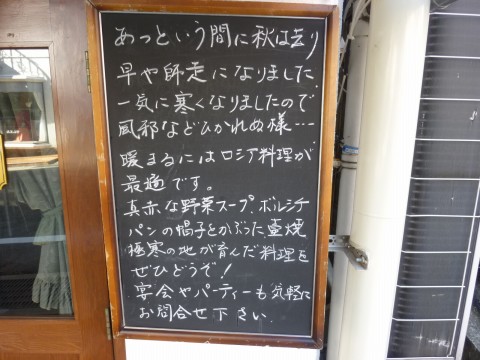 あっという間に秋は去り
早や師走になりました
一気に寒くなりましたので
風邪などひかれぬ様…
暖まるにはロシア料理が
最適です。
真赤な野菜スープ、ボルシチ
パンの帽子をかぶった壷焼
極寒の地が育んだ料理を
ぜひどうぞ!
宴会やパーティーも気軽に
お問合せ下さい.